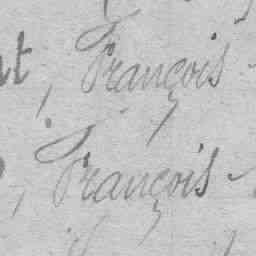 , François
, François